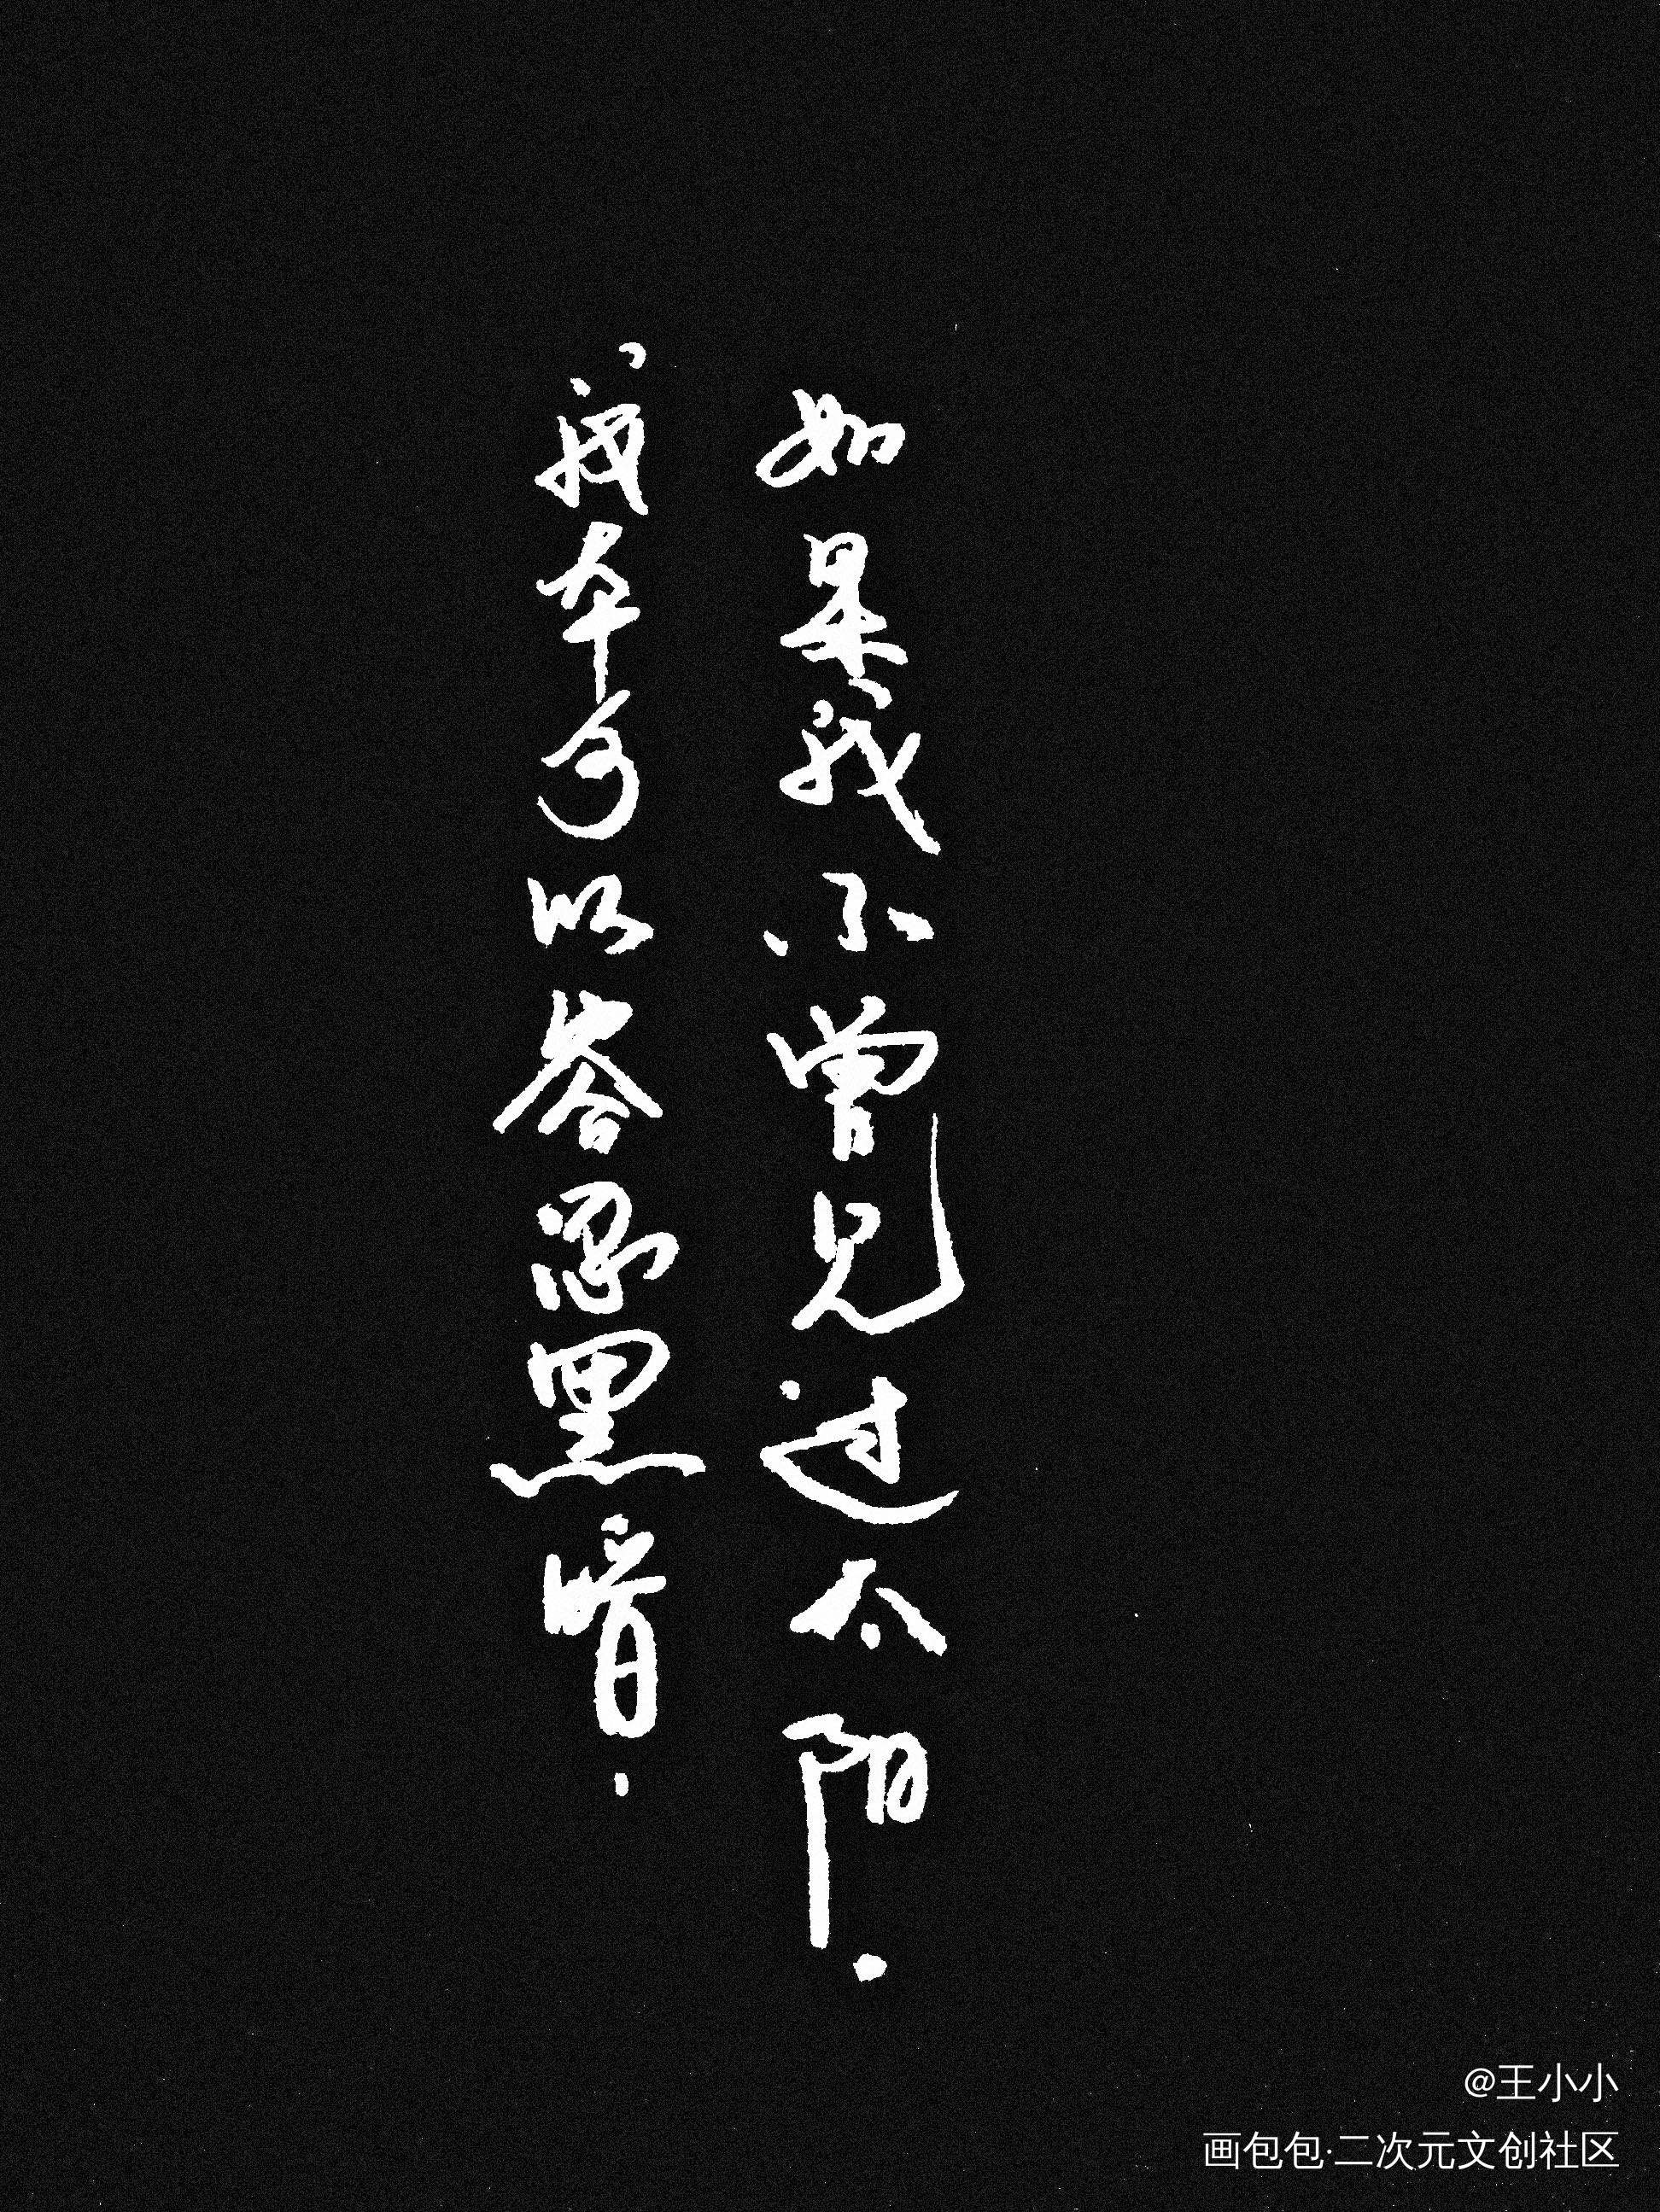 如果我不曾见过太阳.
我本可以容忍黑暗.
@王小小
画包包·二次元文创社区